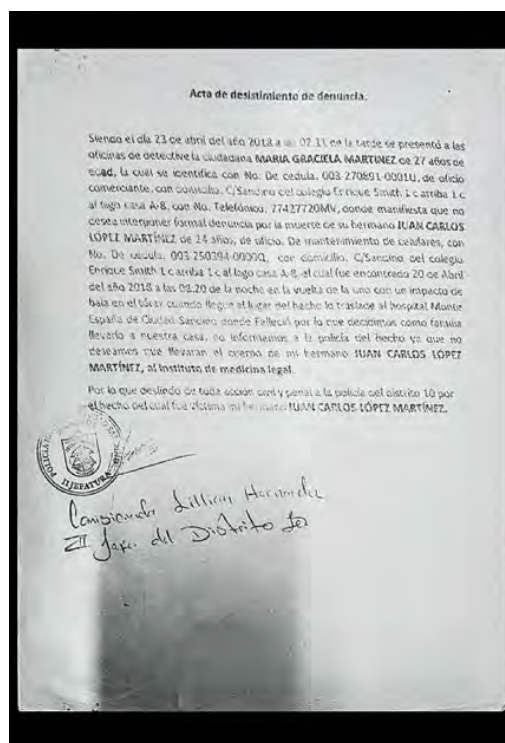 Acta de desistimiento de denuncia.
Siendo el día 23 de abril del año 2018 a las 02.11 de la tarde se presentó a las
oficinas de detective la ciudadana MARIA GRACIELA MARTINEZ de 27 años de
edad, la cual se identifica con No. De cedula. 003-270691-0001U, de oficio
comerciante, con domicilio. C/Sandino del colegio Enrique Smith 1 c arriba 1 c
al lago casa A-8, con No. Telefónico. 77427720MV, donde manifiesta que no
desea interponer formal denuncia por la muerte de su hermano JUAN CARLOS
LÓPEZ MARTÍNEZ de 24 años, de oficio. De mantenimiento de celulares, con
No. De cedula. con domicilio. C/Sandino del colegio
Enrique Smith 1 c arriba 1 c al lago casa A-8, el cual fue encontrado 20 de Abril
del año 2018 a las 08.20 de la noche en la vuelta de la uno con un impacto de
bala en el tórax cuando llegue al lugar del hecho lo traslade al hospital Monte
España de Ciudad Sandino donde Falleció por lo que decidimos como familia
llevarlo a nuestra casa, no informamos a la policía del hecho ya que no
deseamos que llevaran el cuerpo de mi hermano JUAN CARLOS LÓPEZ
MARTÍNEZ, al instituto de medicina legal.
Por lo que deslindo de toda acción civil y penal a la policía del distrito 10 por
el hecho del cual fue víctima mi hermano JUAN CARLOS LÓPEZ MARTÍNEZ.
POLICIA
II JEFATURA
Comisionada Lillian Hernández
II Jefe. del Distrito